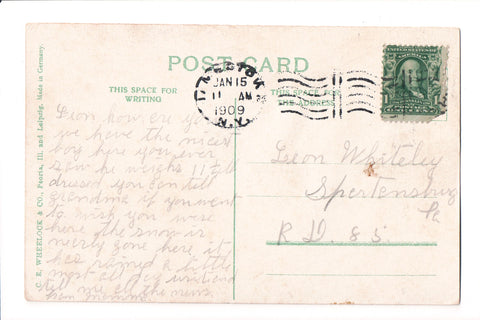 POST CARD
THIS SPACE FOR
WRITING
THIS SPACE FOR
THE ADDRESS
JAN 15
11 AM
1909
N.Y.
Leon how are you
we have the nicest
boy here you ever
saw he weighs 11 lb
dressed you can tell
Grandma if you want
to wish you were
here the snow is
nerly gone here it
has rained a little
most all day
tell me all the news
from mamma
Leon Whiteley
Spartensburg
Pa
R.D. 85.
C. E. WHEELOCK & CO., Peoria, Ill. and Leipzig. Made in Germany.